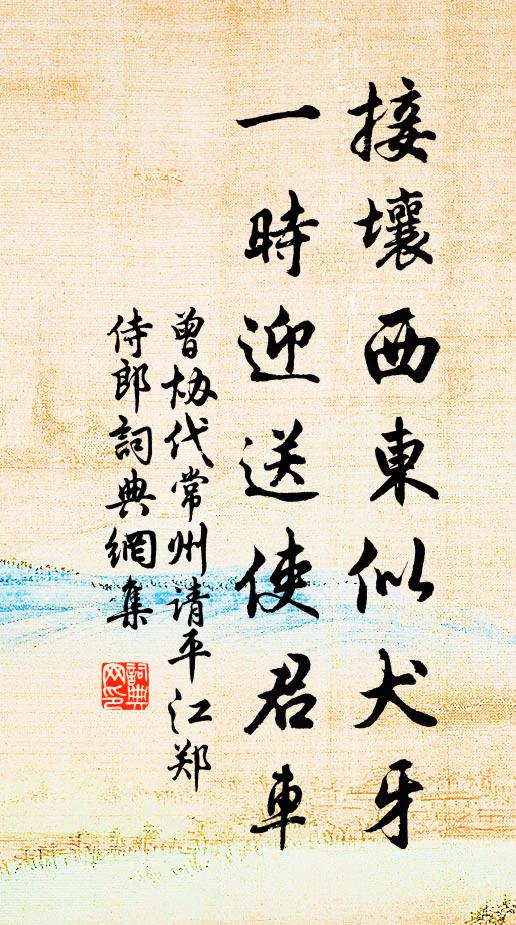 接壤西東似犬牙
一時迎送使君車
曾协代常州请平江郑
侍郎詞典網集
詞典网印